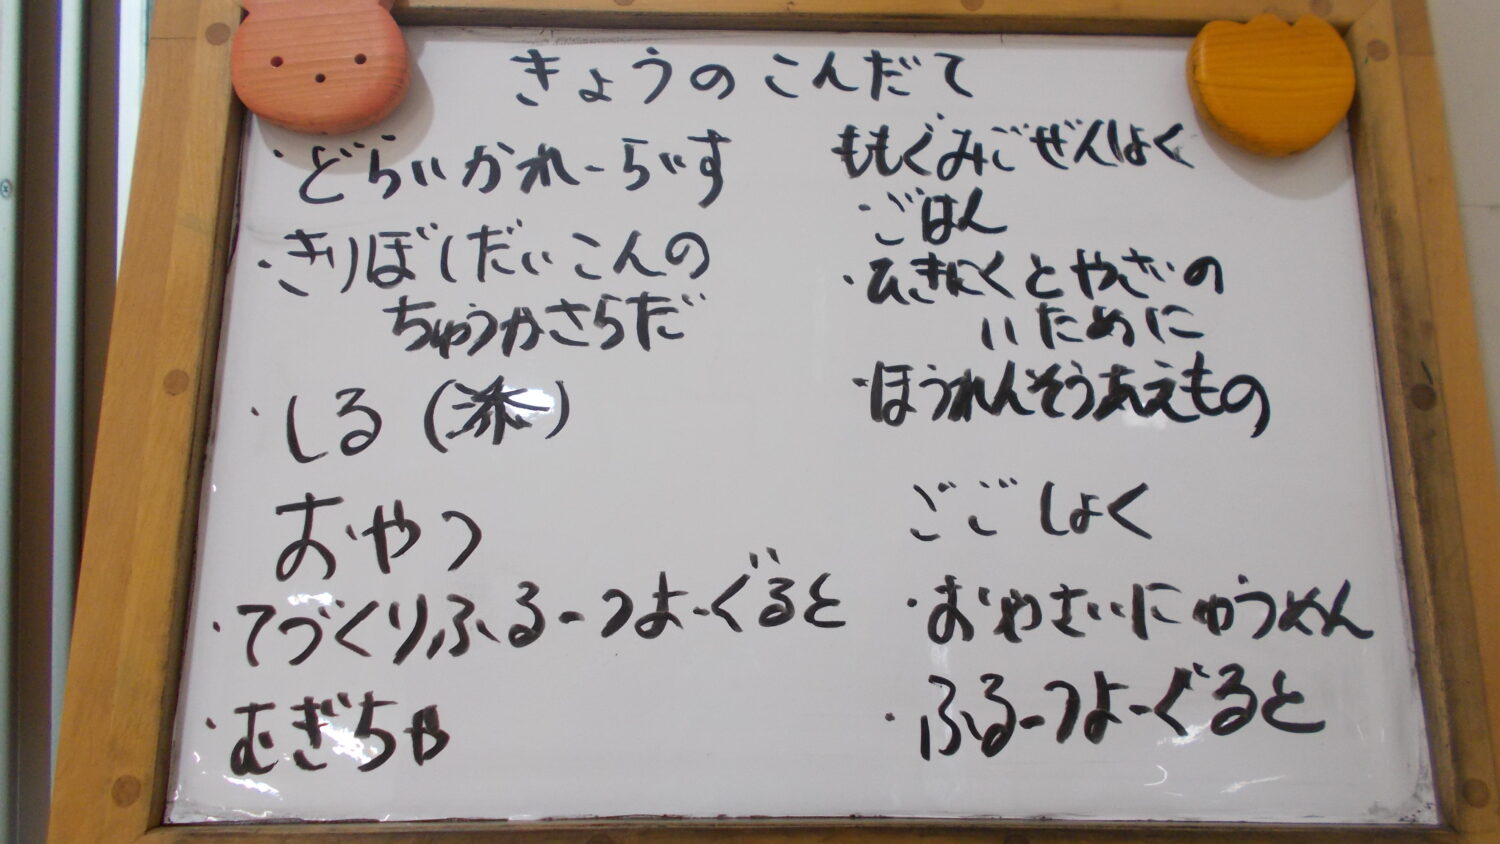 きょうのこんだて
・どらいかれーらいす
・きりぼしだいこんの
ちゅうかさらだ
・しる(添)
おやつ
・てづくりふるーつよーぐると
・むぎちゃ
ももぐみごぜんしょく
・ごはん
・ひきにくとやさいの
いために
・ほうれんそうあえもの
ごごしょく
・おやさいにゅうめん
・ふるーつよーぐると